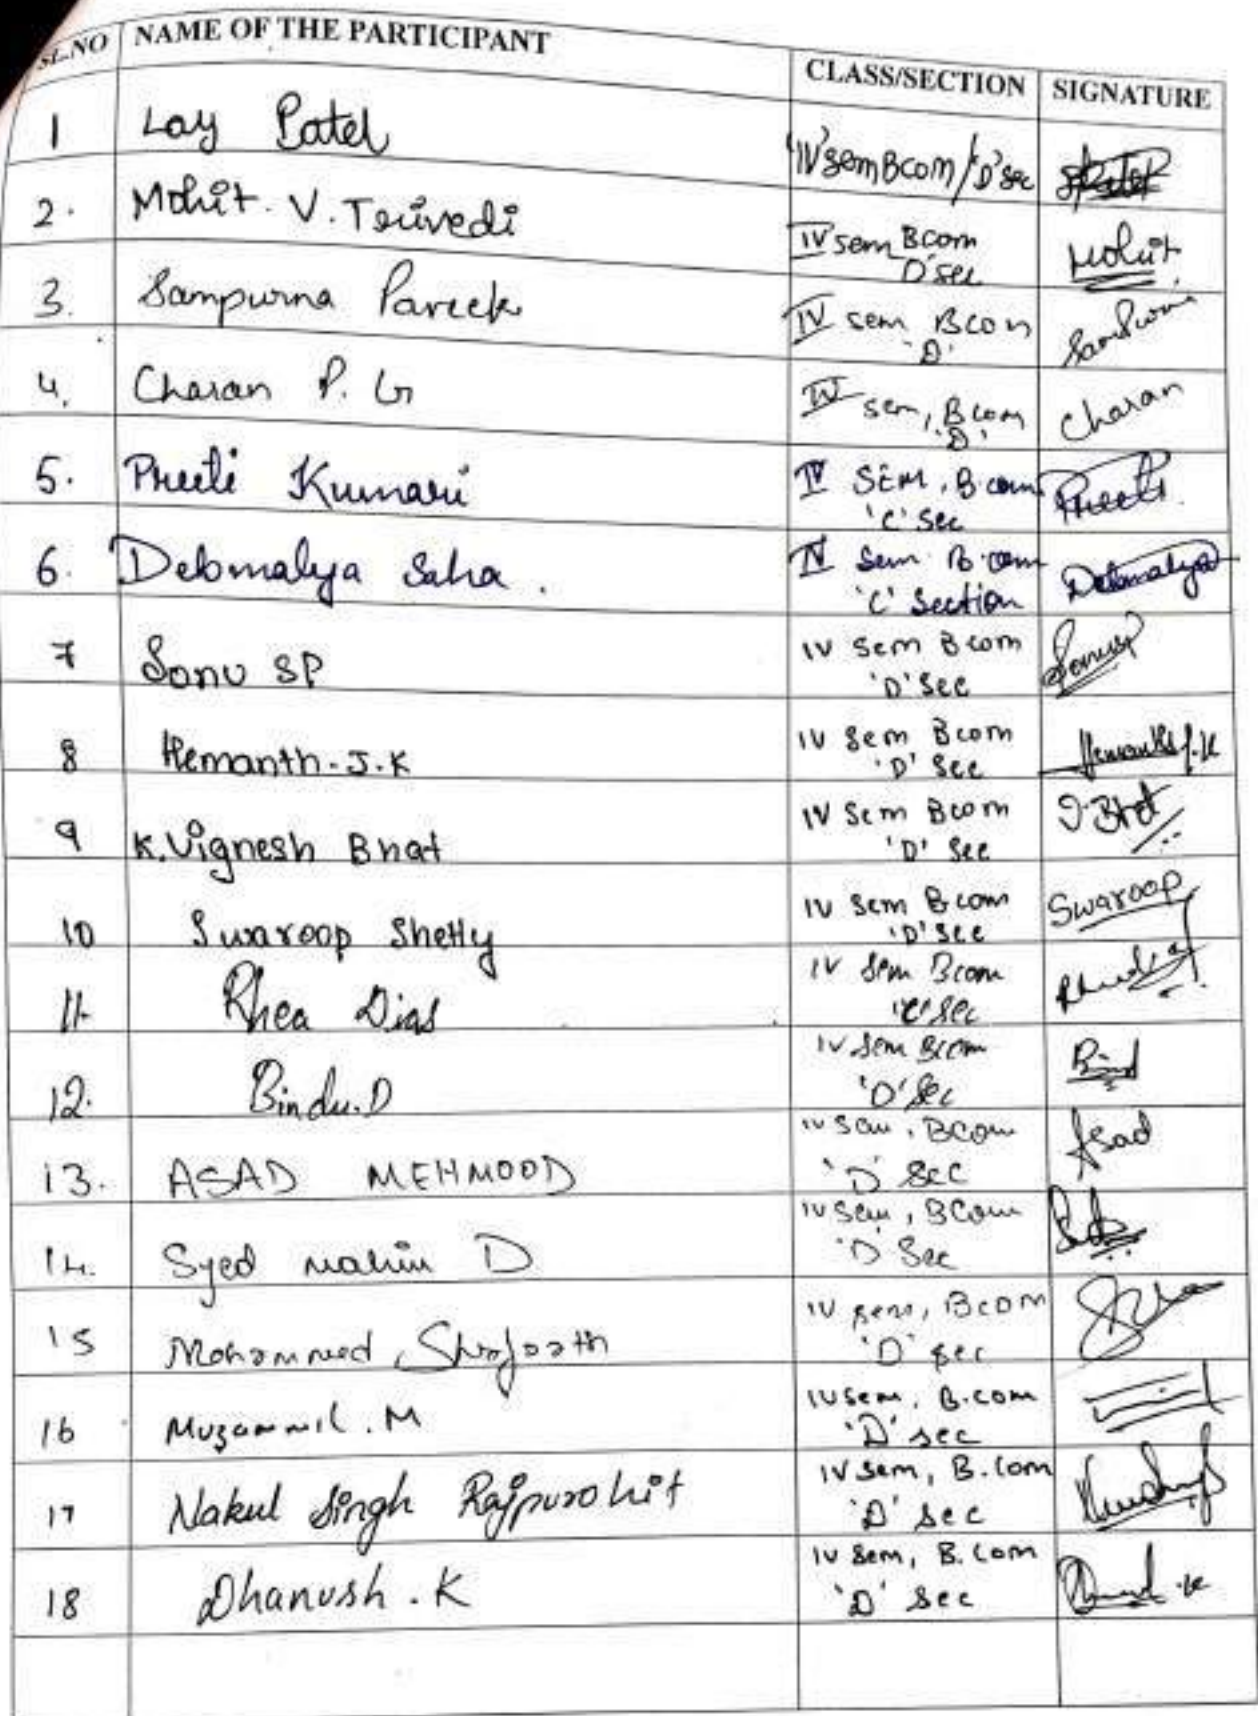 SL.NO NAME OF THE PARTICIPANT CLASS/SECTION SIGNATURE
1 Lay Patel 'IV' sem Bcom/'D' sec
2. Mohit. V. Trivedi IV sem Bcom Mohit
D'sec
3. Sampurna Pareek IV sem Bcom
'D'
4. Charan P. G IV sem, Bcom Charan
'D'
5. Preeti Kumari IV SEM, B com Preeti
'C' Sec
6. Debmalya Saha. IV Sem B.com Debmalya
'C' Section
7 Sonu SP IV Sem Bcom Sonusp
'D' Sec
8 Hemanth.J.K IV Sem Bcom Hemanth J.K
'D' Sec
9 K.Vignesh Bhat IV Sem Bcom
'D' Sec
10 Swaroop Shetty IV Sem Bcom Swaroop
'D' Sec
11. Rhea Dias IV Sem Bcom
'C' Sec
12. Bindu.D IV Sem Bcom
'D' Sec
13. ASAD MEHMOOD IV Sem, BCom Asad
'D' Sec
14. Syed D IV Sem, BCom
'D' Sec
15 Mohammed IV sem, Bcom
'D' sec
16 Muzammil.M IV sem, B.com
'D' sec
17 Nakul Singh Rajpurohit IV sem, B.Com
'D' sec
18 Dhanush.K IV Sem, B.Com
'D' Sec